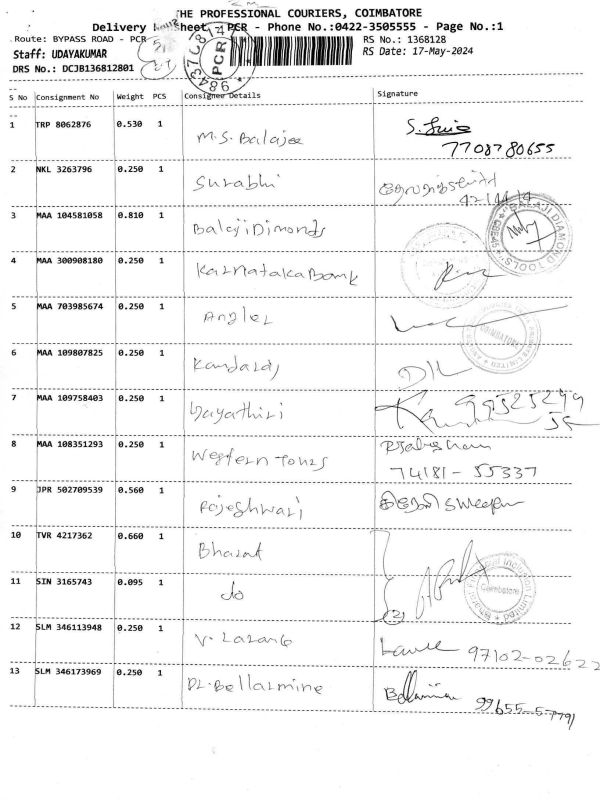 THE PROFESSIONAL COURIERS, COIMBATORE
Delivery Sheet, PCR - Phone No.:0422-3505555 - Page No.:1
Route: BYPASS ROAD - PCR
RS No.: 1368128
Staff: UDAYAKUMAR
RS Date: 17-May-2024
DRS No.: DCJB136812801
PCR
S No Consignment No Weight PCS Consignee Details Signature
1 TRP 8062876 0.530 1 M.S. Balajee
7708780655
2 NKL 3263796 0.250 1 Surabhi
3 MAA 104581058 0.810 1 Balaji Dimonds
4 MAA 300908180 0.250 1 Karnataka Bank
5 MAA 703985674 0.250 1 Angler
6 MAA 109807825 0.250 1
7 MAA 109758403 0.250 1 Gayathiri
8 MAA 108351293 0.250 1 Western Tours
74181-55337
9 JPR 502709539 0.560 1 Rajeshwari
10 TVR 4217362 0.660 1 Bharat
11 SIN 3165743 0.095 1 do
12 SLM 346113948 0.250 1 V. Lazar
97102-02622
13 SLM 346173969 0.250 1 Dr. Bellarmine